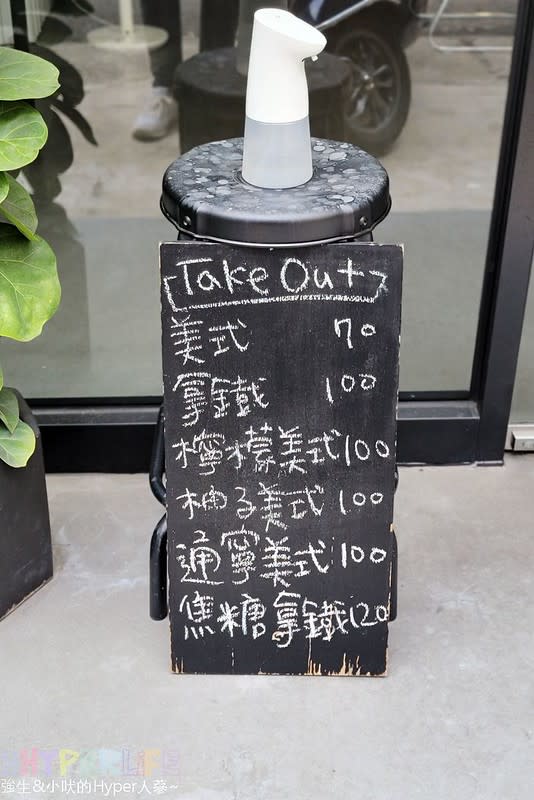 「Take Out」
美式 70
拿鐵 100
檸檬美式 100
柚子美式 100
通寧美式 100
焦糖拿鐵 120
HYPERLIFE
強生&小吠的Hyper人蔘~